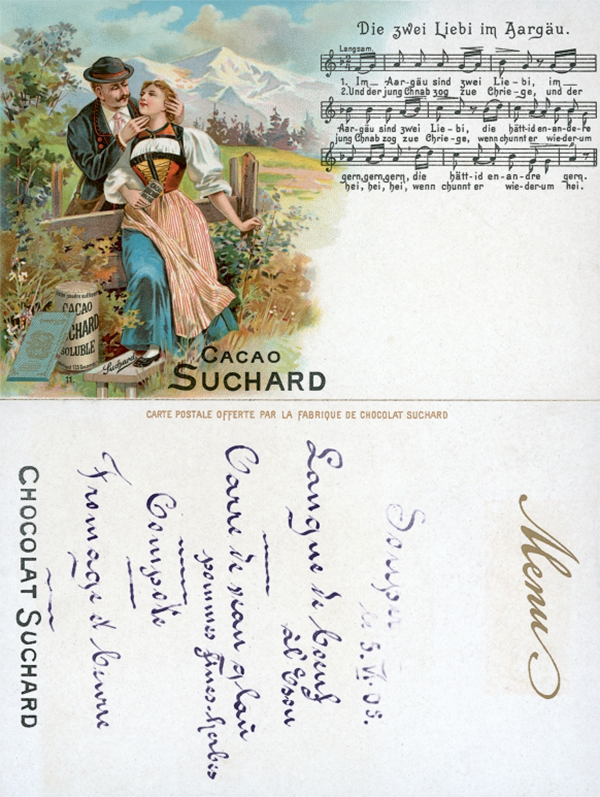 Die zwei Liebi im Aargäu.
Langsam.
1. Im Aar-gäu sind zwei Lie-bi, im
2. Und der jung Chnab zog zue Chrie-ge, und der
Aar-gäu sind zwei Lie-bi, die hätt-id en-an-de-re
jung Chnab zog zue Chrie-ge, wenn chunnt er wie-der-um
gern, gern, gern, die hätt-id en-an-dre gern.
hei, hei, hei, wenn chunnt er wie-der-um hei.
CACAO
SUCHARD
SOLUBLE
Suchard
11.
CACAO
SUCHARD
CARTE POSTALE OFFERTE PAR LA FABRIQUE DE CHOCOLAT SUCHARD
Menu
Souper
5. VI. 05.
Langue de bœuf
Carré de veau glacé
pommes fines-herbes
Compôte
Fromage & beurre
CHOCOLAT SUCHARD